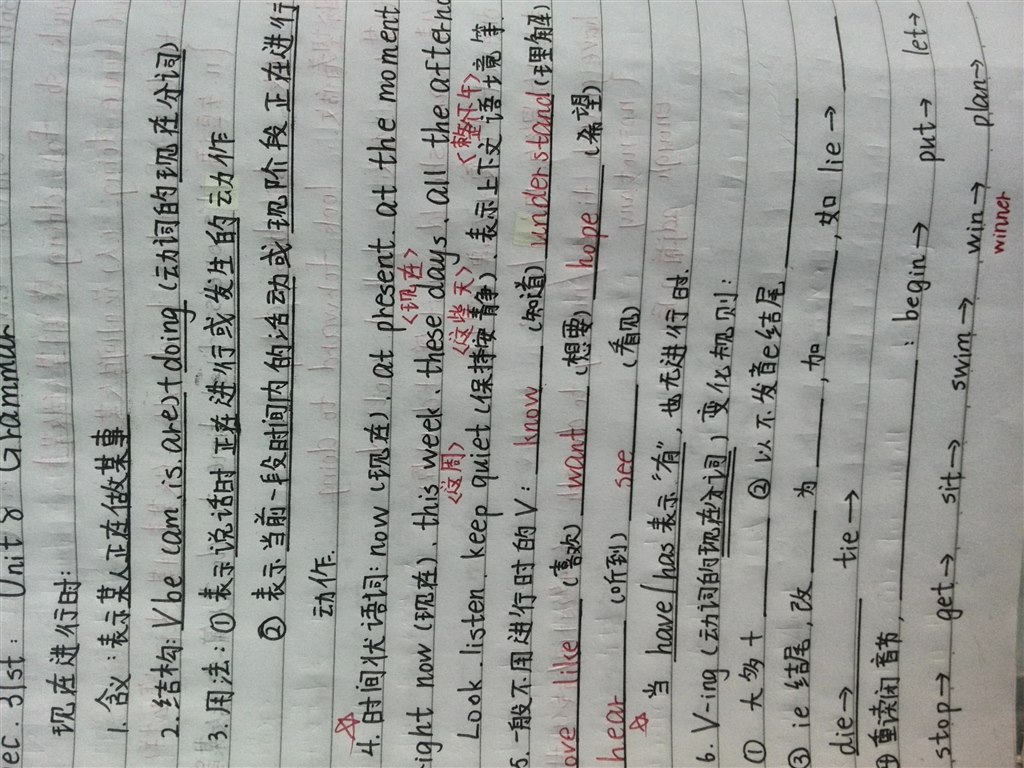 ec. 31st: Unit 8 Grammar
现在进行时:
1. 含义:表示某人正在做某事
2. 结构:Vbe (am.is.are)+doing (动词的现在分词)
3. 用法:① 表示说话时正在进行或发生的动作
② 表示当前一段时间内的活动或现阶段正在进行
动作.
☆
4. 时间状语词:now (现在). at present. at the moment
<现在>
right now (现在). this week. these days. all the afterno
<这周> <这些天> <整个下午>
Look. listen. keep quiet (保持安静). 表示上下文语境等
5. 一般不用进行时的V: know (知道) understand (理解)
ove like (喜欢) want (想要) hope (希望)
hear (听到) see (看见)
☆ 当 have/has 表示“有”, 也无进行时.
6. V-ing (动词的现在分词) 变化规则:
① 大多+ ② 以不发音e结尾
③ ie 结尾, 改 为 , 加 , 如 lie→
die→ tie→
④ 重读闭音节, : begin→ put→ let→
stop→ get→ sit→ swim→ win→ plan→
winner